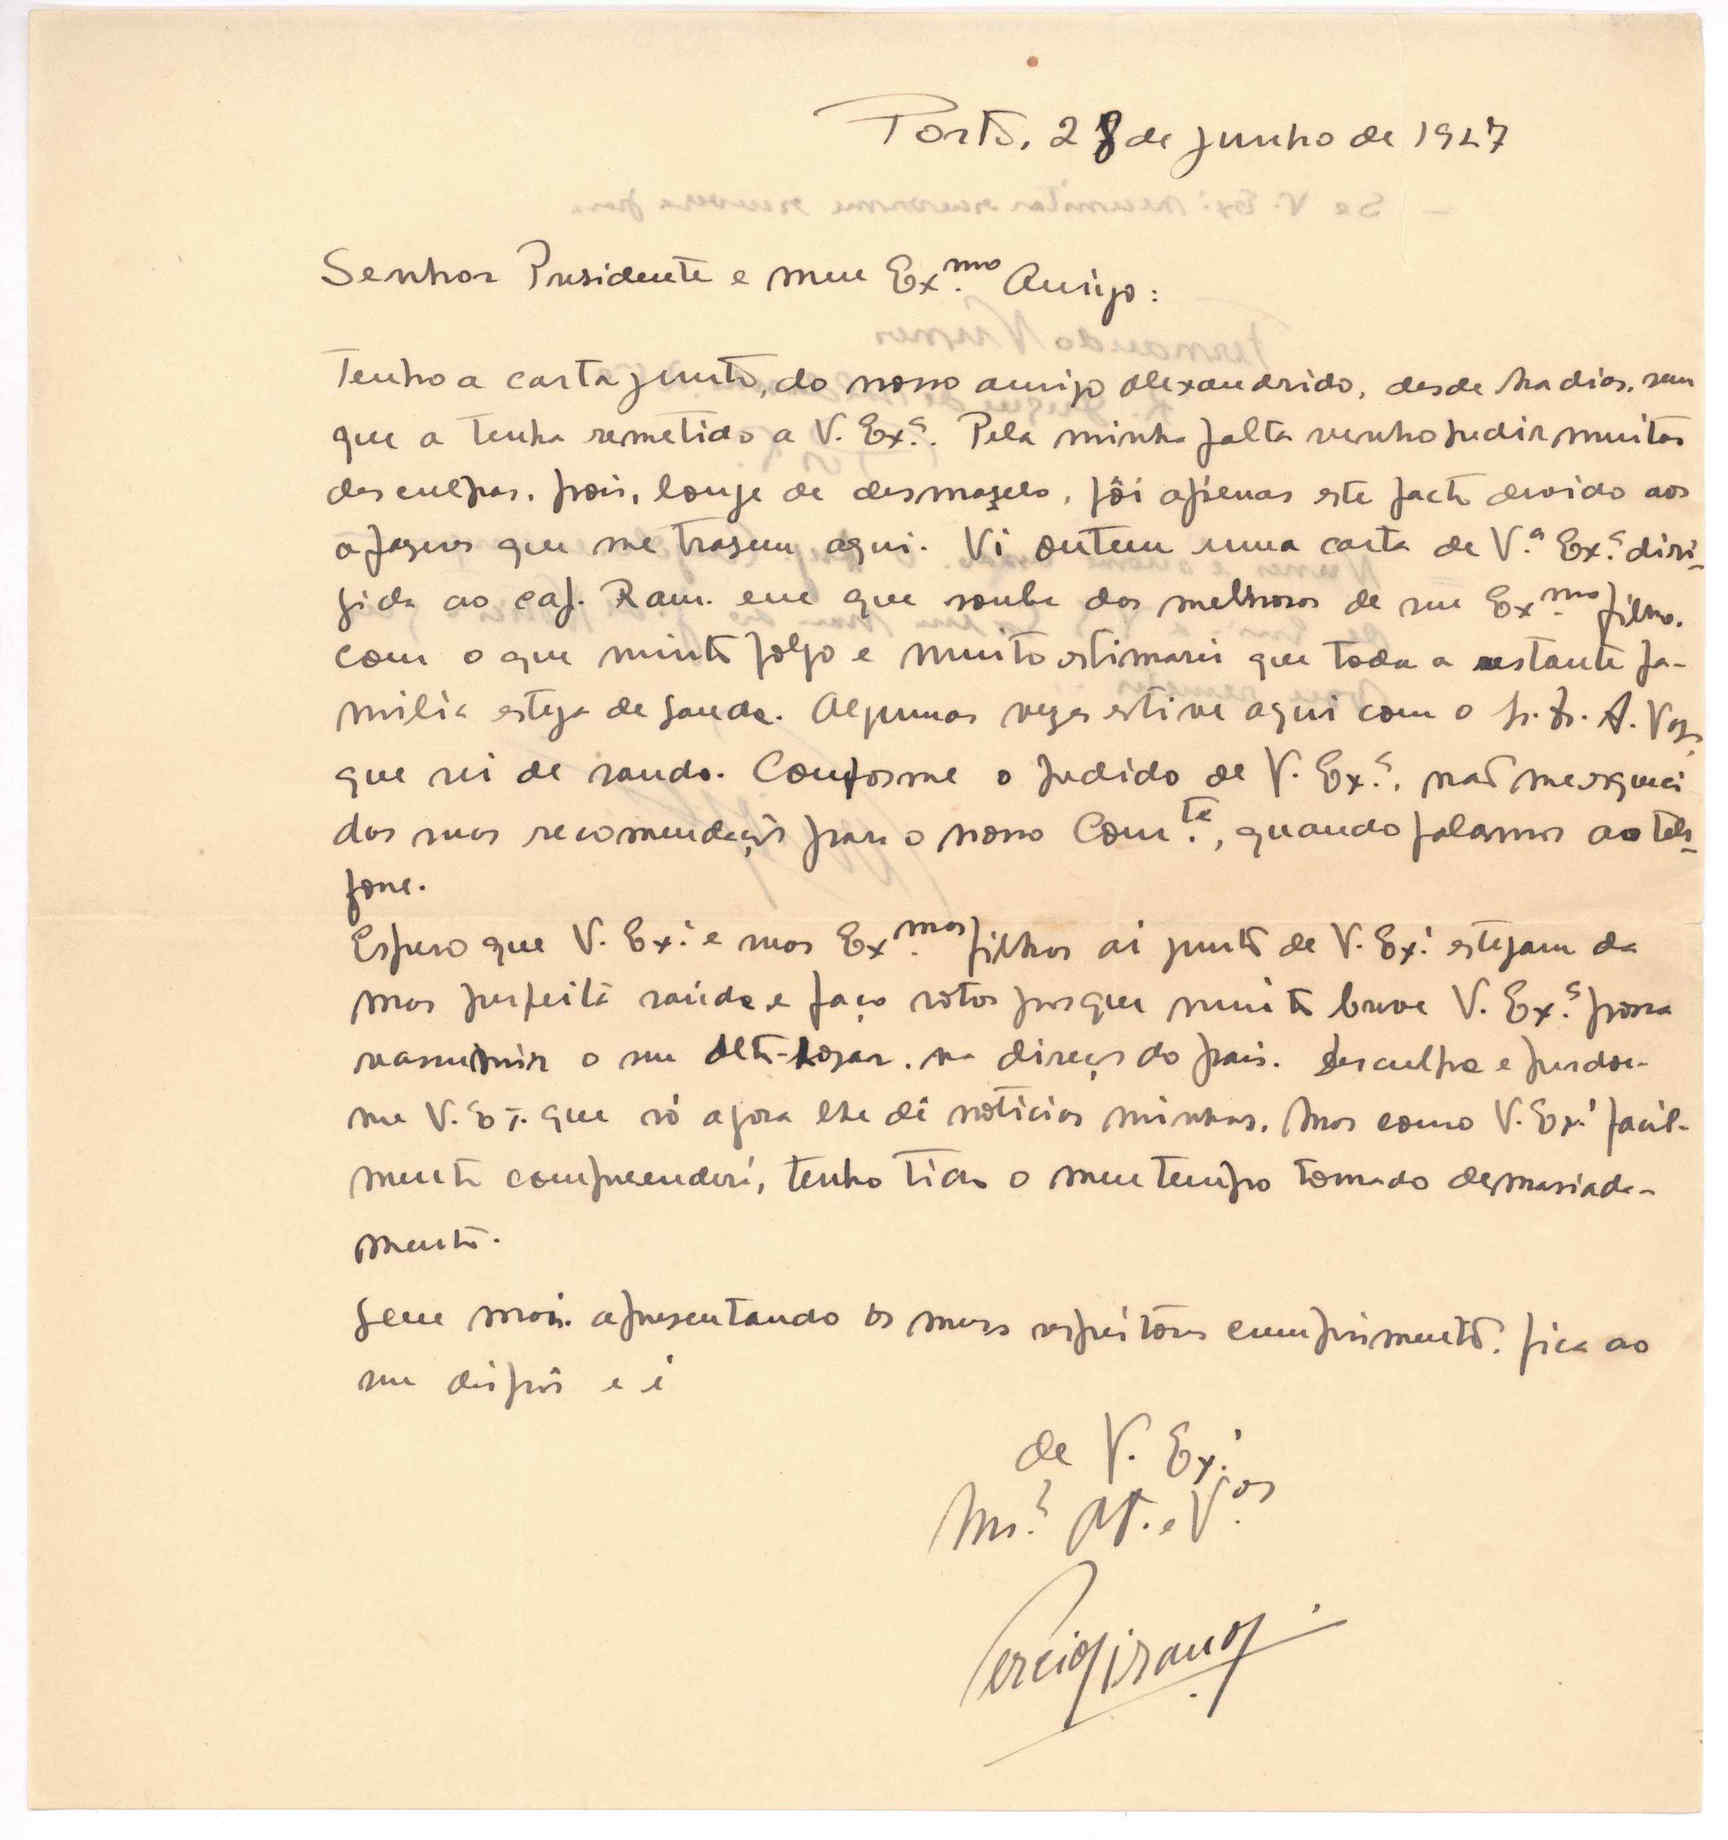 Porto, 28 de Junho de 1927
Senhor Presidente e meu Ex.mo Amigo:
Tenho a carta junto, do nosso amigo Alexandrido, desde ha dias, sem
que a tenha remetido a V. Ex.ª. Pela minha falta venho pedir muitas
desculpas, pois, longe de desmazelo, fôi apenas este facto devido aos
afazeres que me trazem aqui. Vi ontem uma carta de V.ª Ex.ª diri-
gida ao cap. Ram. em que soube das melhoras de seu Ex.mo filho,
com o que muito folgo e muito estimarei que toda a restante fa-
milia esteja de saude. Algumas vezes estive aqui com o Sr. Dr. A. Vaz,
que vi de saude. Conforme o pedido de V. Ex.ª, não me esqueci
das suas recomendações para o nosso Com.te, quando falamos ao tele-
fone.
Espero que V. Ex.ª e seus Ex.mos filhos ai junto de V. Ex.ª estejam da
mais perfeita saúde e faço votos porque muito breve V. Ex.ª possa
reassumir o seu Alto-Logar, na direcção do pais. Desculpe e perdoe-
me V. Ex.ª que só agora lhe dê noticias minhas, mas como V. Ex.ª facil-
mente compreenderá, tenho tido o meu tempo tomado demasiada-
mente.
Sem mais apresentando os meus respeitosos cumprimentos, fica ao
seu dispôr e é
de V. Ex.ª
Mt.º At. e V.or